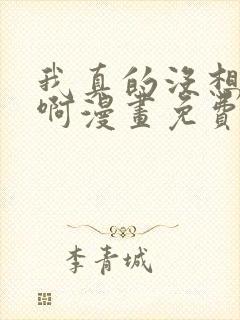 我真的没想
啊漫畫免費
李青城